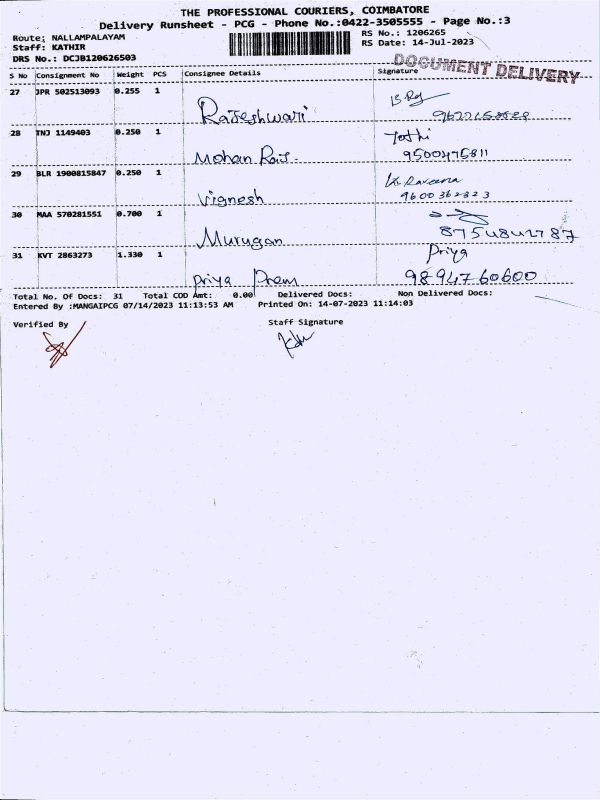 THE PROFESSIONAL COURIERS, COIMBATORE
Delivery Runsheet - PCG - Phone No.:0422-3505555 - Page No.:3
Route: NALLAMPALAYAM
RS No.: 1206265
Staff: KATHIR
RS Date: 14-Jul-2023
DRS No.: DCJB120626503
DOCUMENT DELIVERY
S No Consignment No Weight PCS Consignee Details Signature
27 JPR 502513093 0.255 1
Rajeshwari
28 TNJ 1149403 0.250 1
Mohan Raj. 9500475811
29 BLR 1900815847 0.250 1
Vignesh 9600362323
30 MAA 570281551 0.700 1
Murugan 8754842787
31 KVT 2863273 1.330 1 Priya
Priya Prem 9894760600
Total No. Of Docs: 31 Total COD Amt: 0.00 Delivered Docs: Non Delivered Docs:
Entered By :MANGAIPCG 07/14/2023 11:13:53 AM Printed On: 14-07-2023 11:14:03
Verified By Staff Signature